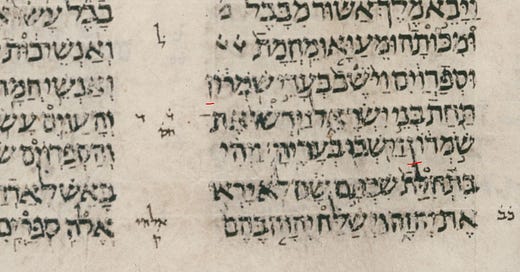 ויבא מלך אשור מבבל
ומכותה ומעוא ומחמת
וספרוים וישב בערי שמרון
תחת בני ישראל וירשו את
שמרון וישבו בעריה ויהי
בתחלת שבתם שם לא יראו
את יהוה וישלח יהוה בהם
בבל עשו
ואנשי כות
ואנשי חמת
והעוים עש
והספרוים ש
באש לאדר
אלה ספרים